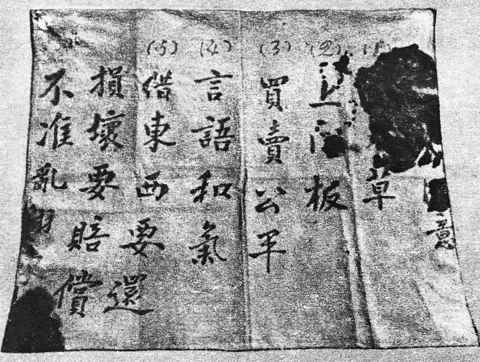 意
(1)草
(2)上门板
(3)買賣公平
(4)言語和氣
(5)借東西要還
損壞要賠償
不准亂